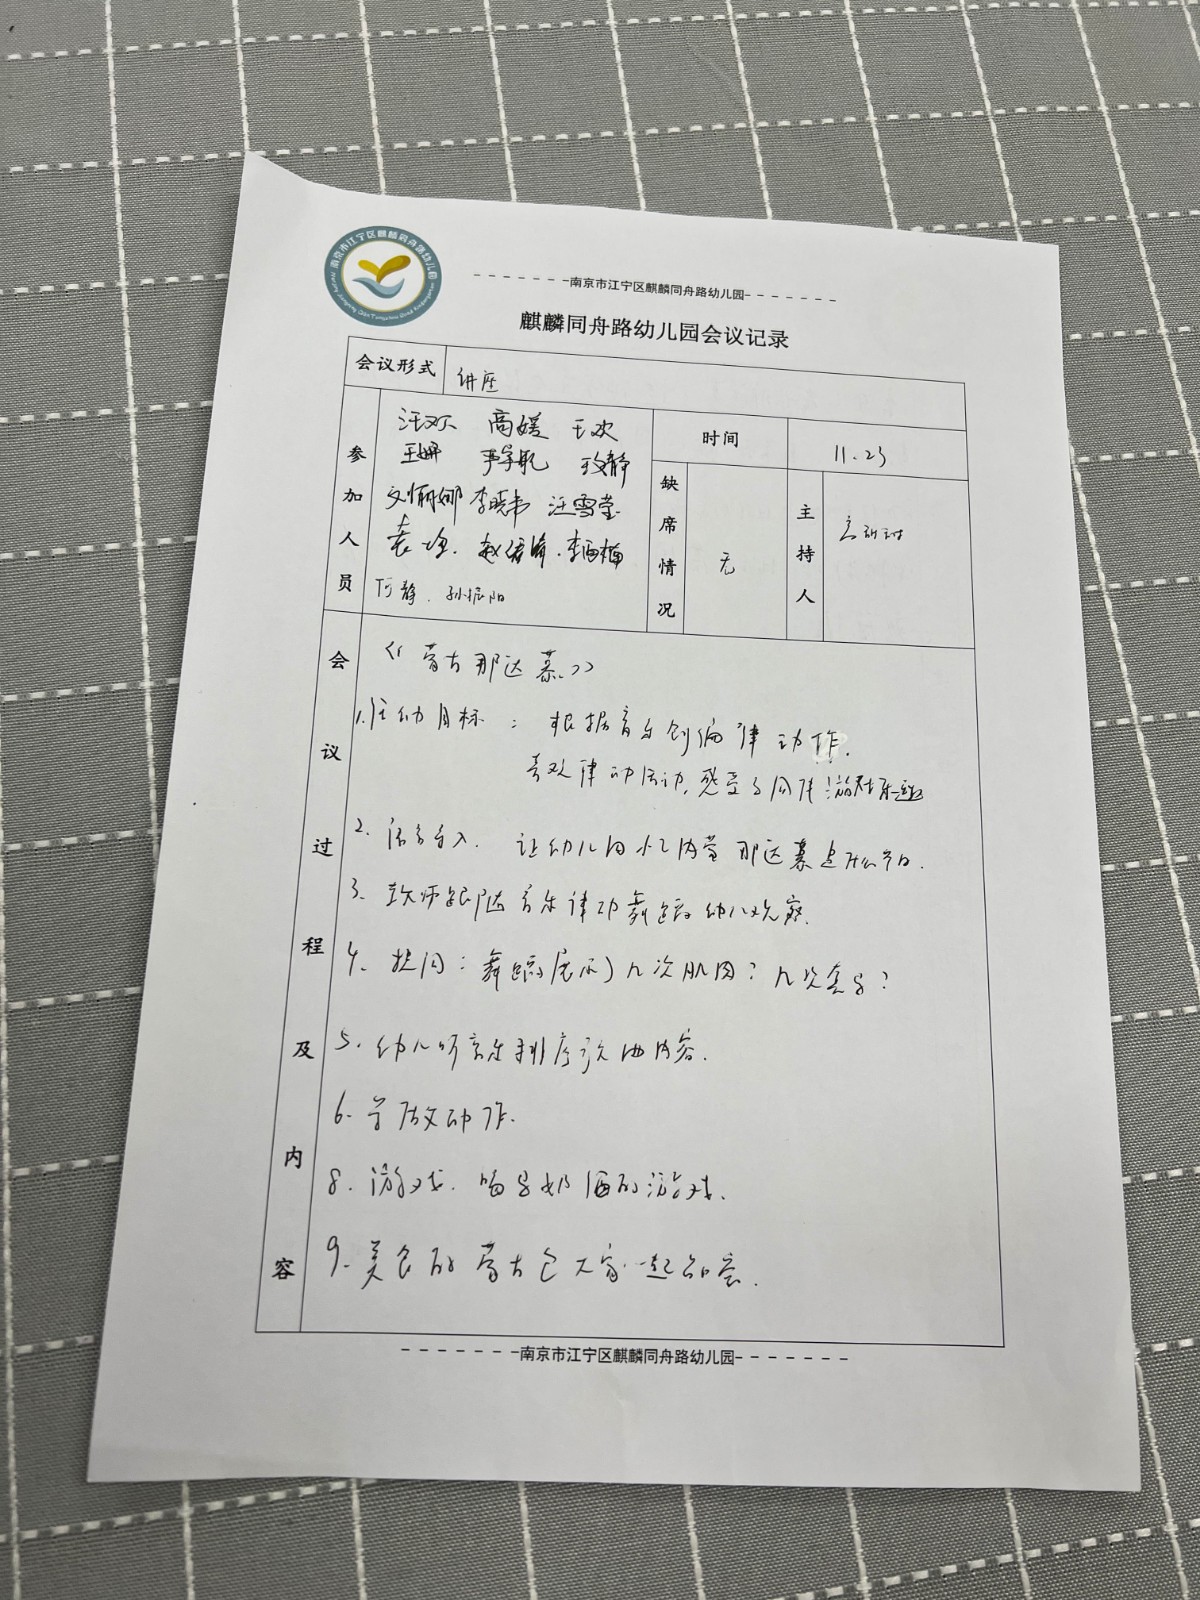 南京市江宁区麒麟同舟路幼儿园
-------南京市江宁区麒麟同舟路幼儿园-------
麒麟同舟路幼儿园会议记录
会议形式 讲座
参加人员
汪欢 高媛 王欢
王娜
刘丽娜 李晓韦 汪雪莹
袁 李西梅
何静. 孙振阳
时间 11.23
缺席情况 无
主持人
会议过程及内容
《蒙古那达慕》
1.活动目标: 根据音乐创编律动作.
喜欢律动活动,感受与同伴游戏乐趣
2. 语言导入. 让幼儿回忆内蒙那达慕是什么节日.
3. 教师跟随音乐律动舞蹈 幼儿观察.
4. 提问: 舞蹈展示了几次肌肉? 几次
5. 幼儿听音乐排序歌曲内容.
6. 学做动作.
8. 游戏. 喝马奶酒的游戏.
9. 美食的蒙古包大家一起品尝.
-------南京市江宁区麒麟同舟路幼儿园-------